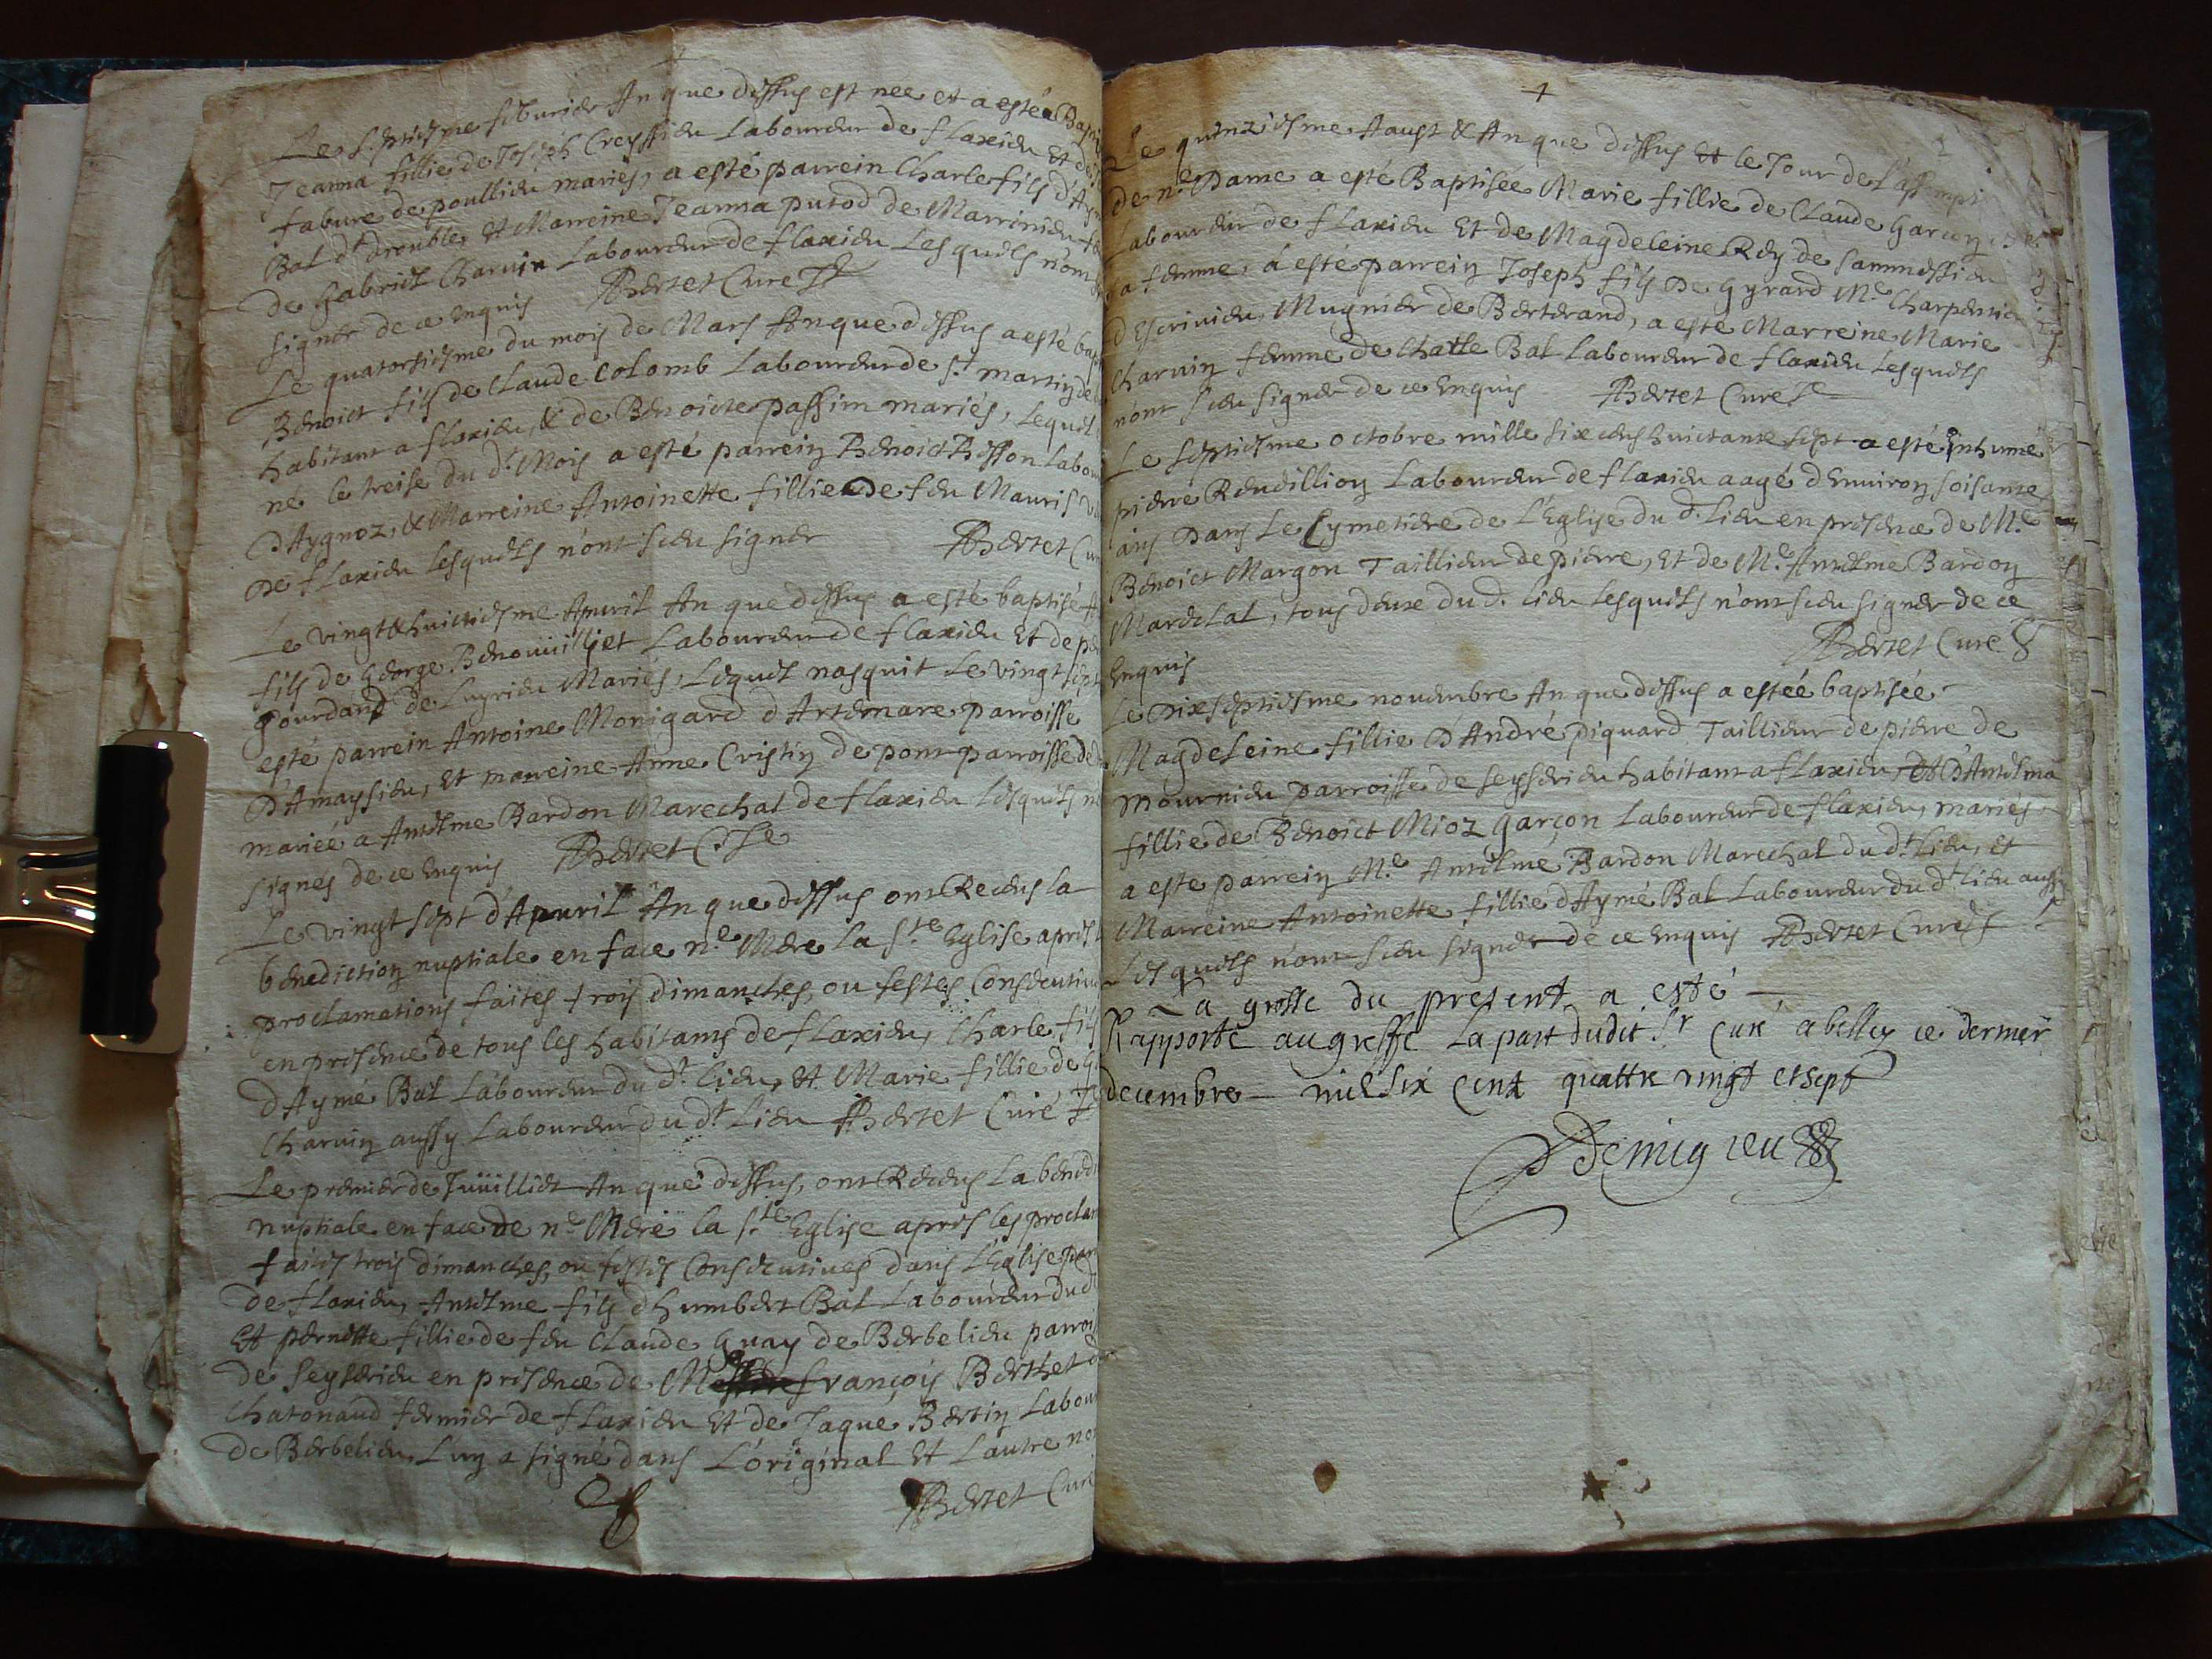 Le septiesme feburier An que dessus est nee et a estéé Bapti
Jeanna fillie de Joseph Creyssieu Laboureur de flaxieu Et de
fabure de poullieu mariés, a esté parrein Charle fils d'Aym
Bal dt drouble, et Marreine Jeanna putod de Marinieu
de Gabriel Charvin Laboureur de flaxieu Lesquels n'ont
signer de ce Enquis ABertet Curé
Le quatorsiesme du mois de Mars An que dessus a esté bap
Benoict fils de Claude Colomb Laboureur de St martin de
habitant a flaxieu, & de Benoicte passim mariés, Lequel
né le treise du dt Mois a esté parrein Benoict Bisson Labou
D'Aygnoz, & Marreine Antoinette fillie De feu Mauris
De flaxieu Lesquels n'ont sceu signer ABertet Cur
Le vingt & huictiesme Apuril An que dessus a esté baptisé A
fils de George Benouuilliet Laboureur de flaxieu Et de pe
gourdand de Luyrieu Mariés, Lequel nasquit Le vingt sept
esté parrein Antoine Monigard d'Artemare parroisse
D'Amaysieu, Et marreine Anne Cristin de pont parroisse de
mariéé a Antelme Bardon Marechal de flaxieu Lesquels n
signes de ce Enquis ABertet C.
Le vingt sept d'Apuril An que dessus ont Receus la
benediction nuptiale en face ne Mere la Ste Eglise apres l
proclamations faites trois dimanches, ou festes Consecutiue
en presence de tous les habitants de flaxieu, Charle fils
d'Aymé Bal Laboureur du dt lieu, et Marie fillie de G
Charvin aussy Laboureur du dt Lieu ABertet Curé
Le premier de Juuilliet An que dessus, ont Receus La bened
nuptiale en face de ne Mere la Ste Eglise apres les proclam
faites trois dimanches, ou festes Consecutiues dans L'Eglise par
de flaxieu, Antelme fils d'humbert Bal Laboureur du dt
Et pernette fillie de feu Claude Guay de Berbelieu parroi
de Seyserieu en presence de M françois Berthet
Chatonaud fermier de flaxieu Et de Jaque Bertin Labour
de Berbelieu, L'un a signé dans L'original Et L'autre non
ABertet Curé
4
Le quinziesme Aaust & An que dessus Et le Jour de L'assompti
de ne Dame a esté Baptisée Marie fillie de Claude Garcon
Laboureur de flaxieu Et de Magdeleine Rey de Sammessieu
sa femme, a esté parrein Joseph fils De gyrard Me Charpentie
D'Escriuieu, Mugnier de Berterand, a esté Marreine Marie
Charvin femme de Chatle Bal Laboureur de flaxieu Lesquels
n'ont sceu signer de ce Enquis ABertet Curé
Le septiesme octobre mille six cens huictante sept a esté inhumé
pierre Reudillion Laboureur de flaxieu aagé d'Environ soisante
ans Dans Le Cymetiere de L'Eglise du d. Lieu en presence de Me
Benoict Margon Taillieur de pierre, Et de Me Antelme Bardon
Marechal, tous deux du d. lieu Lesquels n'ont sceu signer de ce
Enquis ABertet Curé
Le Dixseptiesme nouembre An que dessus a estéé baptisée
Magdeleine fillie D'André piquard Taillieur de pierre de
Mournieu parroisse de Seyserieu habitant a flaxieu, Et D'Antelma
fillie de Benoict Mioz Garçon Laboureur de flaxieu, mariés
a este parrein Me Antelme Bardon Marechal du dt Lieu, et
Marreine Antoinette fillie d'Aymé Bal Laboureur du dt lieu aussy
Lesquels n'ont sceu signer de ce Enquis ABertet Curé
La grosse du present a esté
Rapporté au greffe La part dudit Sr Curé a belley ce dernier
decembre mil six cent quattre vingt et sept
Demigieu